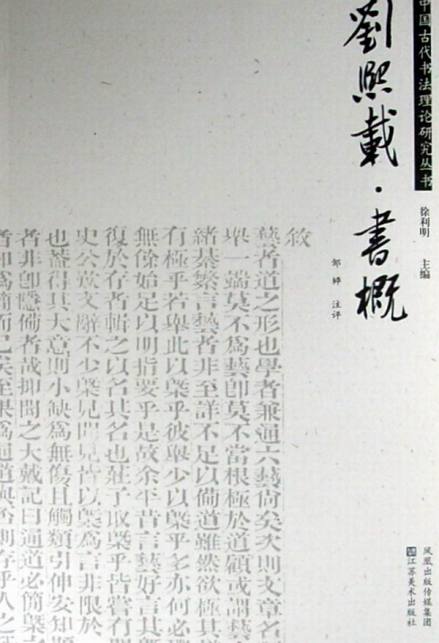 中国古代书法理论研究丛书
徐利明 主编
劉熙載·書概
邹婷 注评
敘
藝者道之形也學者兼通六藝尚矣次則文章名
舉一端莫不爲藝卽莫不當根極於道顧或謂藝
緒綦繁言藝者非至詳不足以備道雖然欲極其
有極乎若舉此以槩乎彼舉少以槩乎多亦何必
無餘始足以明指要乎是故余平昔言藝好言其
復於存者輯之以名其名也莊子取槩乎皆嘗有聞
史公歎文辭不少槩見聞見皆以槩爲言非限於
也蓋得其大意則小缺爲無傷且觸類引伸安知
者非卽隱備者哉抑聞之大戴記曰通道必簡槩之
者知爲簡而已矣至果爲通道與否則存乎人之
凤凰出版传媒集团
江苏美术出版社